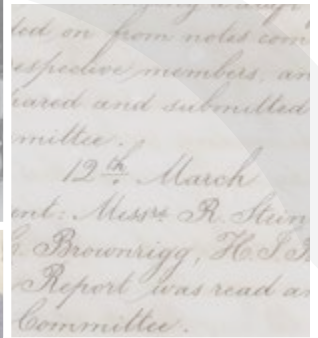 ded on from notes com
espective members, an
pared and submitted
mittee.
12th March
ent: Messrs R. Stein
Brownrigg, H. S.
Report was read an
Committee.